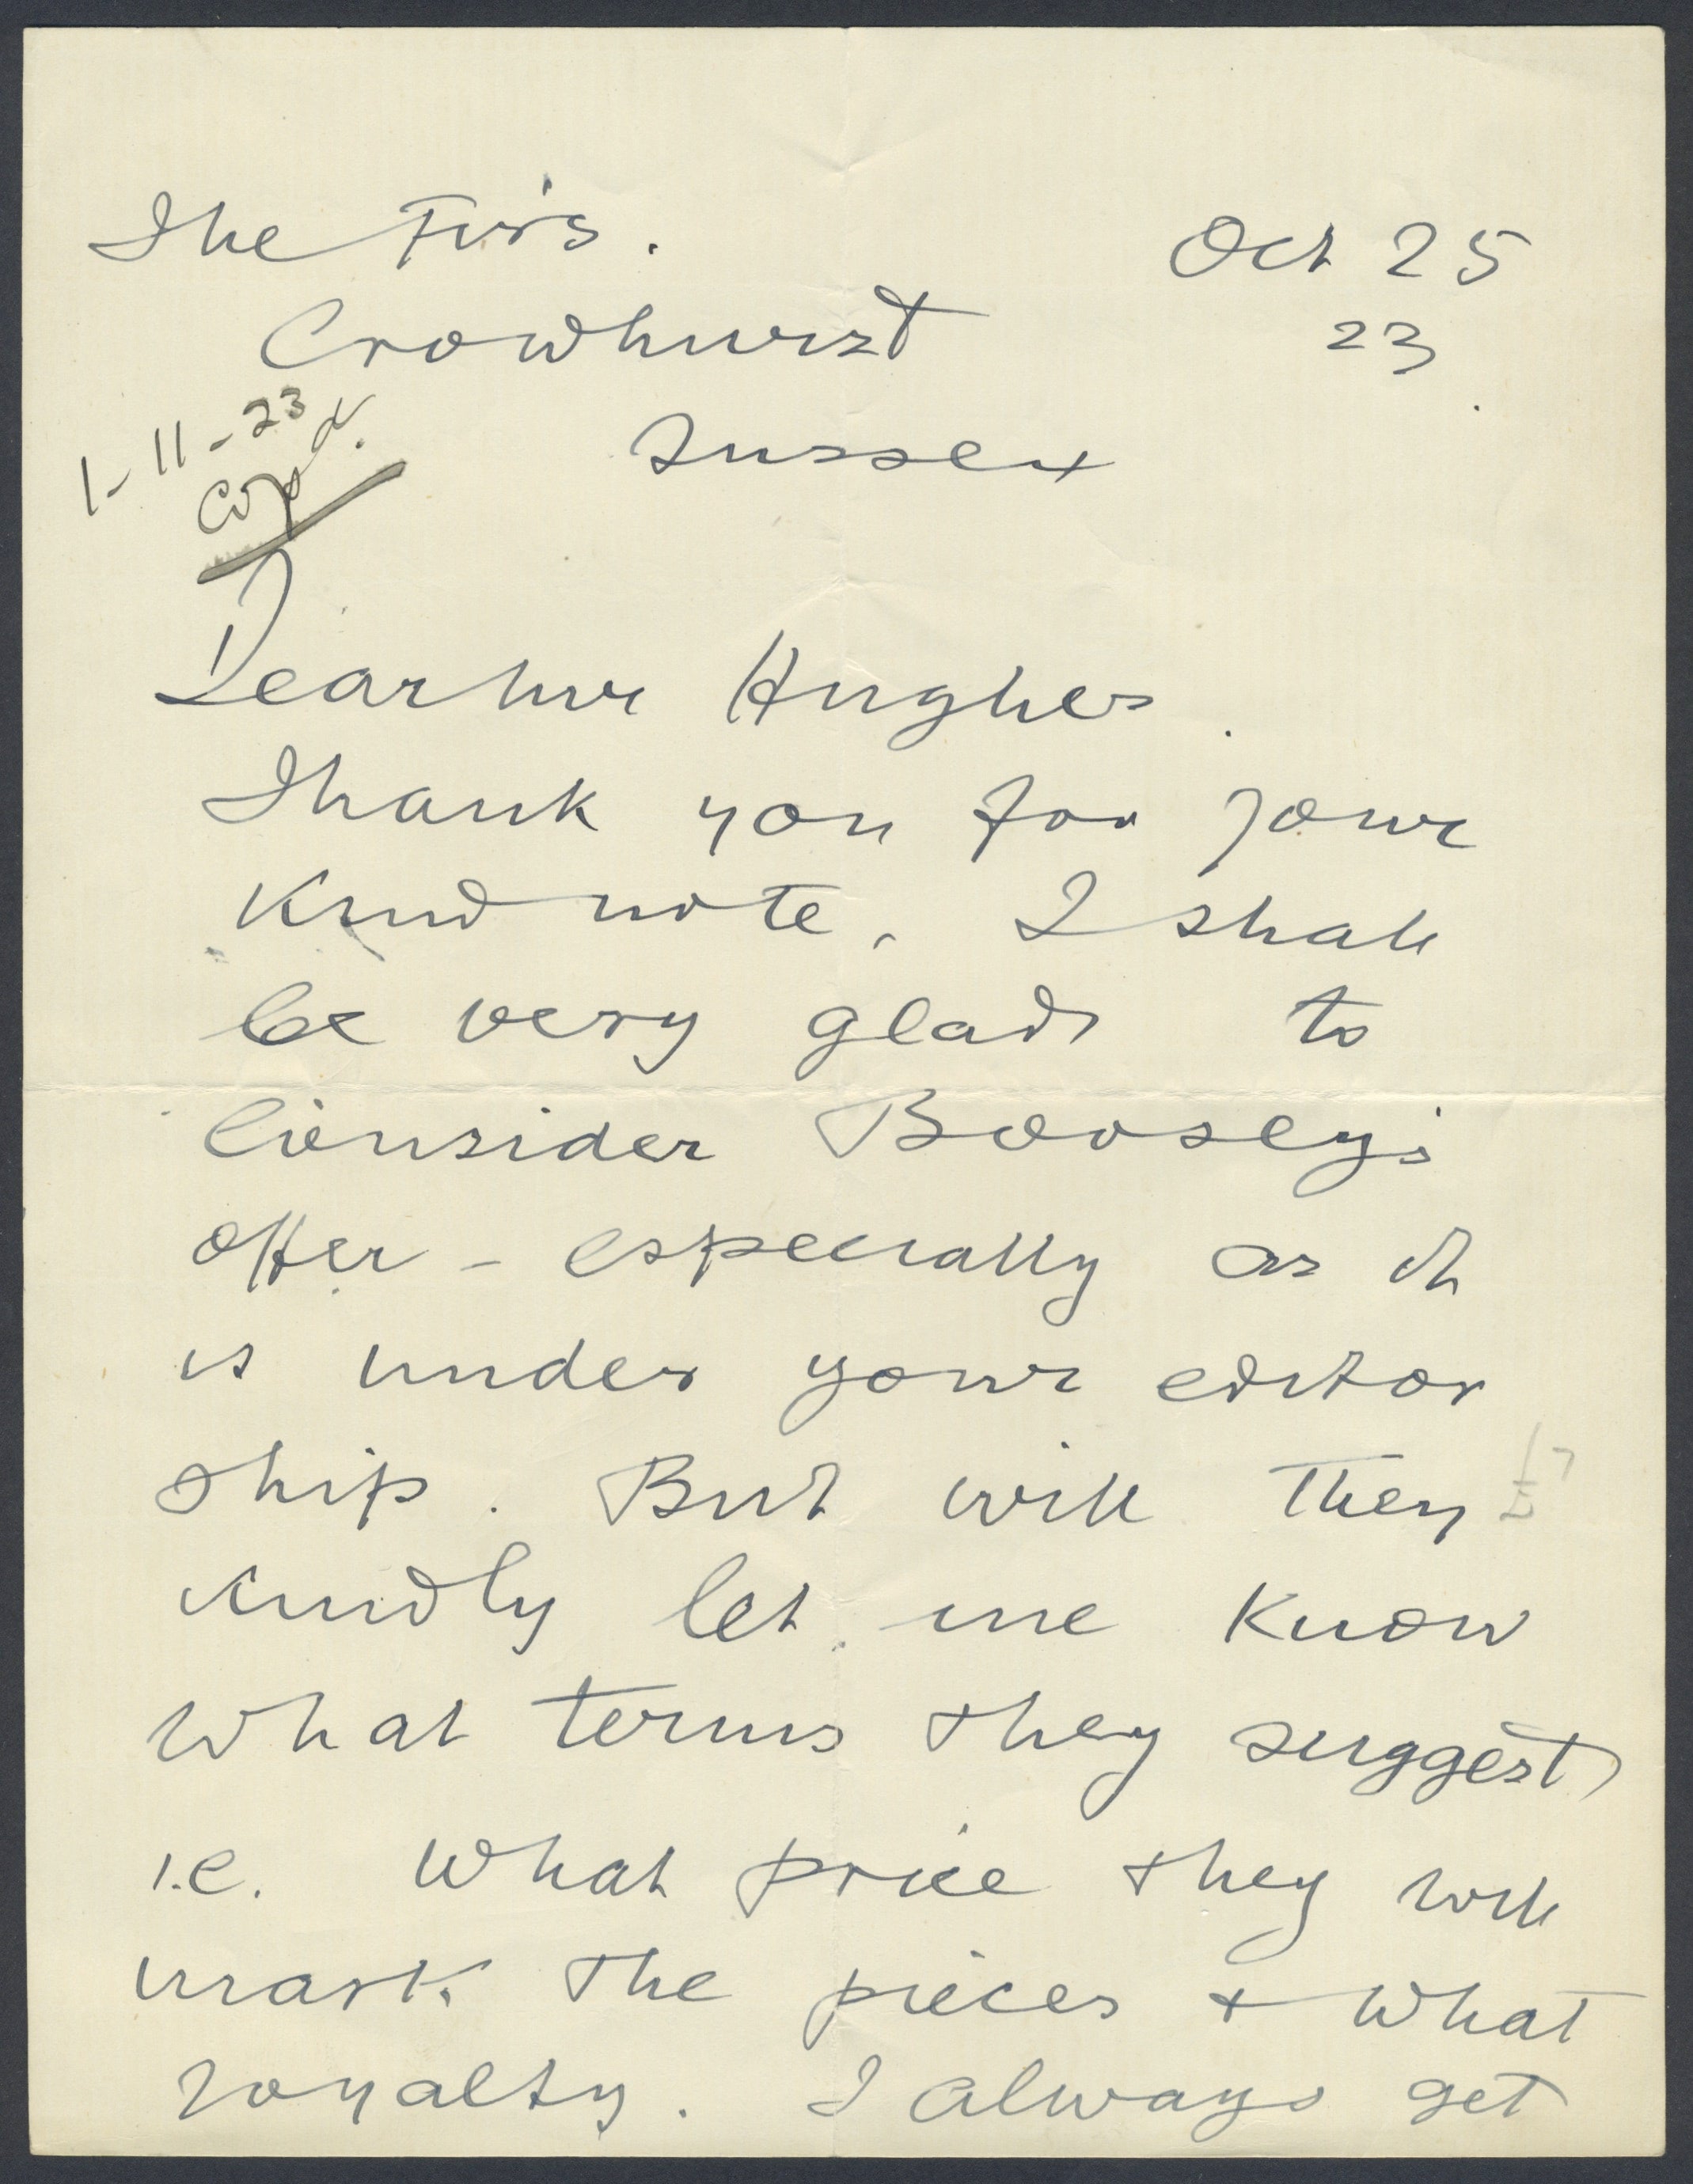 The Firs.
Oct 25
23
Crowhurst
Sussex
1-11-23
Copd.
Dear Mr Hughes.
Thank you for your
kind note. I shall
be very glad to
consider Boosey's
offer - especially as it
is under your editor
ship. But will they
kindly let me know
what terms they suggest
i.e. what price they will
mark the pieces + what
royalty. I always get